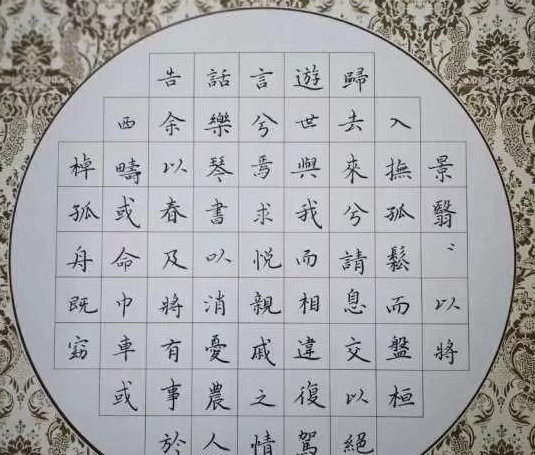 景翳〻以將
入撫孤鬆而盤桓
歸去來兮請息交以絕
遊世與我而相違復駕
言兮焉求悅親戚之情
話樂琴書以消憂農人
告余以春及將有事於
西疇或命巾車或
棹孤舟既窈